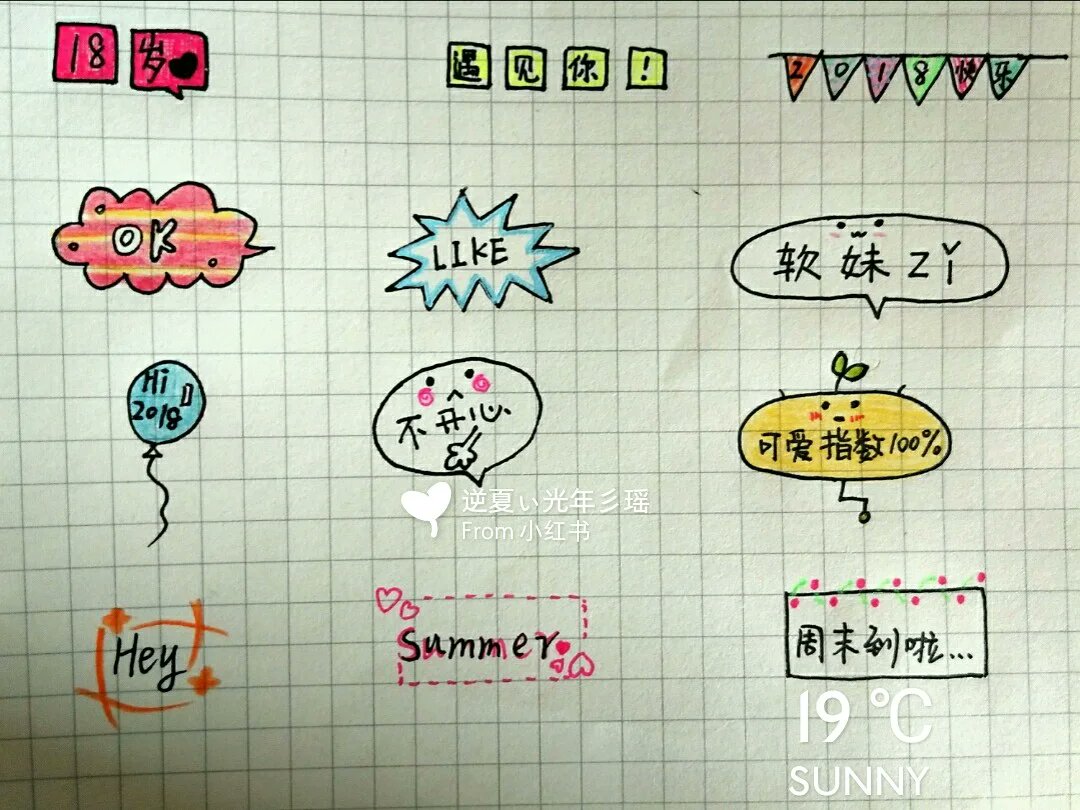 18岁
遇见你！
2018快乐
OK
LIKE
软妹zǐ
Hi
2018
不开心
可爱指数100%
逆夏い光年彡瑶
From 小红书
Hey
Summer
周末到啦...
19℃
SUNNY